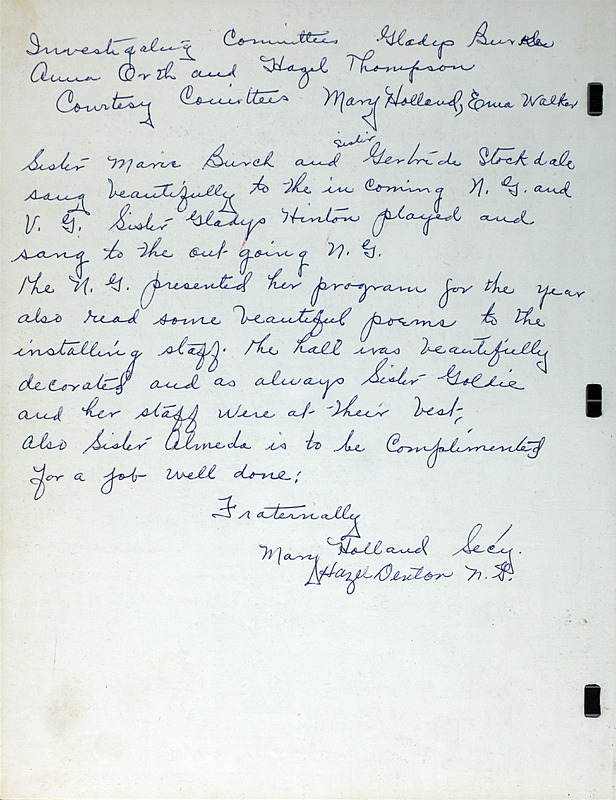 Investigating Committees Gladys
Anna Orth and Hazel Thompson
Courtesy Comittees Mary Holland, Erma Walker
sister
Sister Marie Burch and Gertride Stockdale
sang beautifully to the in coming N. G. and
V. G. Sister Gladys Hinton played and
sang to the out going N. G.
The N. G. presented her program for the year
also read some beautiful poems to the
installing staff. The hall was beautifully
decorated and as always Sister Goldie
and her staff were at their best,
Also Sister Almeda is to be Complimented
for a job well done;
Fraternally
Mary Holland Sec'y.
Hazel Denton N. G.